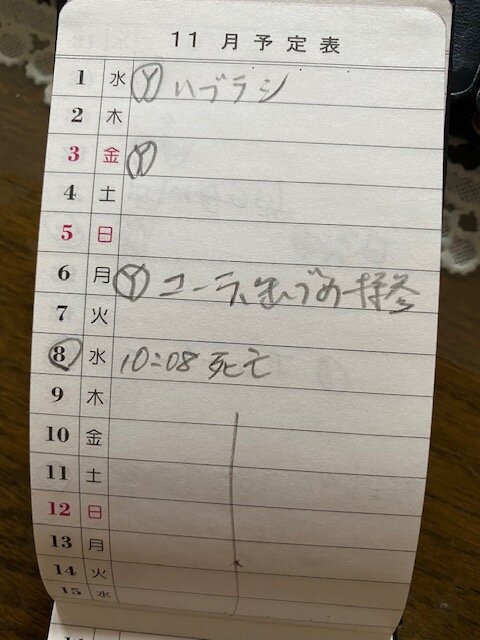 11月予定表
1 水 Ⓨ ハブラシ
2 木
3 金 Ⓨ
4 土
5 日
6 月 Ⓨ コーラ、
7 火
8 水 10:08 死亡
9 木
10 金
11 土
12 日
13 月
14 火
15 水